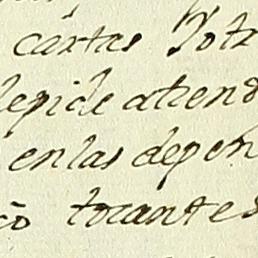 cartas Yotr
lepide atiend
enlas depen
tocantes